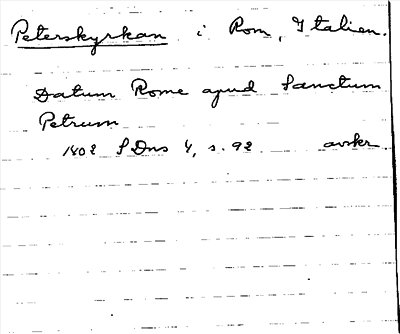 Peterskyrkan i Rom, Italien.
Datum Rome apud Sanctum
Petrum
1402 SDns 4, s. 92 avskr.